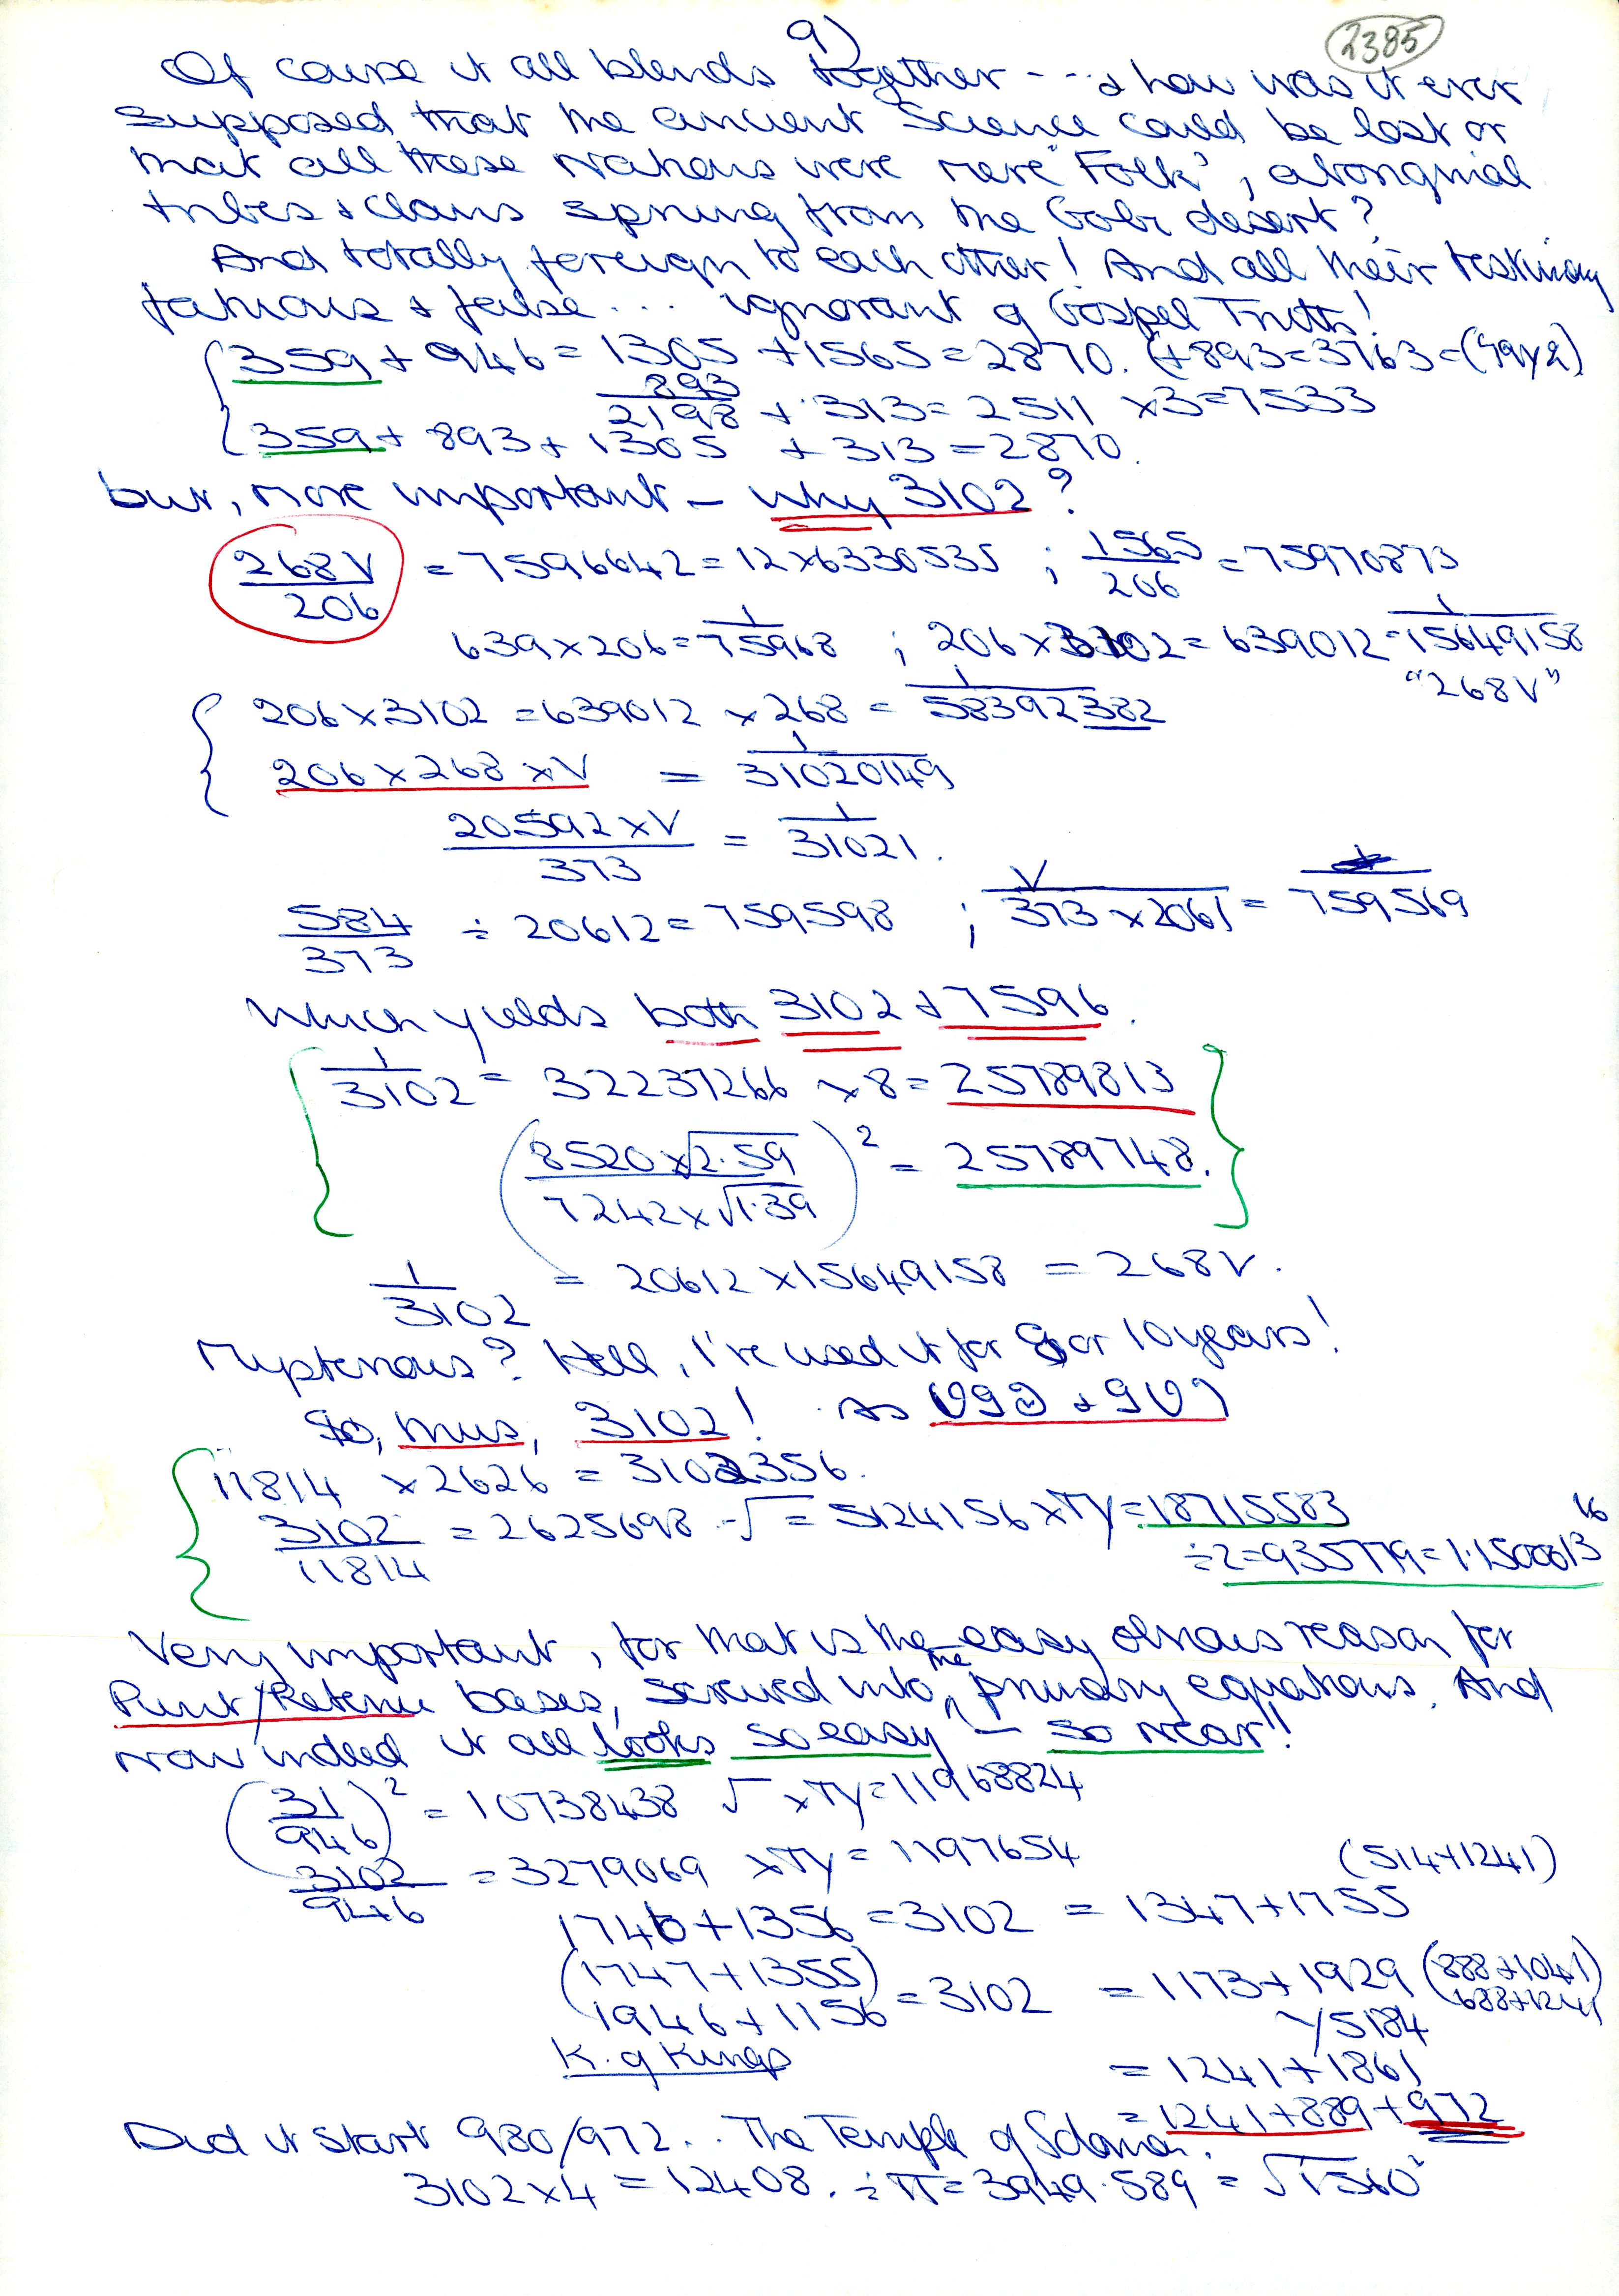 9)
2385
Of cause it all blends together --- & how was it ever
supposed that the ancient Science could be lost or
that all these Nations were mere "Folk", aboriginial
tribes & clans sprung from the Gobi desert?
And totally foreign to each other! And all their testimony
fatuous & false... ignorant of Gospel Truth!
359 + 946 = 1305 + 1565 = 2870. (+893 = 3763 =
893
2198 + 313 = 2511 x3 = 7533
359 + 893 + 1305 + 313 = 2870.
but, more important - why 3102?
268V/206 = 7596642 = 12x6330535 ; 1565/206 = 75970873
639x206 = 1/75968 ; 206x3102 = 639012 = 1/15649158
"268V"
206x3102 = 639012 x268 = 1/58392382
206x268xV = 1/31020149
20592xV/373 = 1/31021.
584/373 ÷ 20612 = 759598 ; V/373x2061 = 759569
Which yields both 3102 + 7596.
1/3102 = 32237266 x8 = 25789813
(8520x√2.59/7242x√1.39)² = 25789748.
1/3102 = 20612x15649158 = 268V.
Mysterious? Hell, I've used it for 8 or 10 years!
So, thus, 3102! As
11814 x2626 = 3102356.
3102/11814 = 2625698 √ = 5124156xTy = 18715583
÷2 = 935779 = 1.1500613 16
Very important, for that is the easy obvious reason for
Punt/Retenu bases, screwed into the primary equations. And
now indeed it all looks so easy - so near!!
(31/946)² = 10738438 √ xTy = 11968824
3102/946 = 3279069 xTy = 1197654
(514+1241)
1746+1356 = 3102 = 1347+1755
(1747+1355)
1946+1156 = 3102 = 1173+1929 (888+1041)
688+1241
K. of Kings
Y5184
= 1241+1861
= 1241+889+972
Did it start 980/972.. The Temple of Solomon.
3102x4 = 12408. ÷π = 3949.589 =